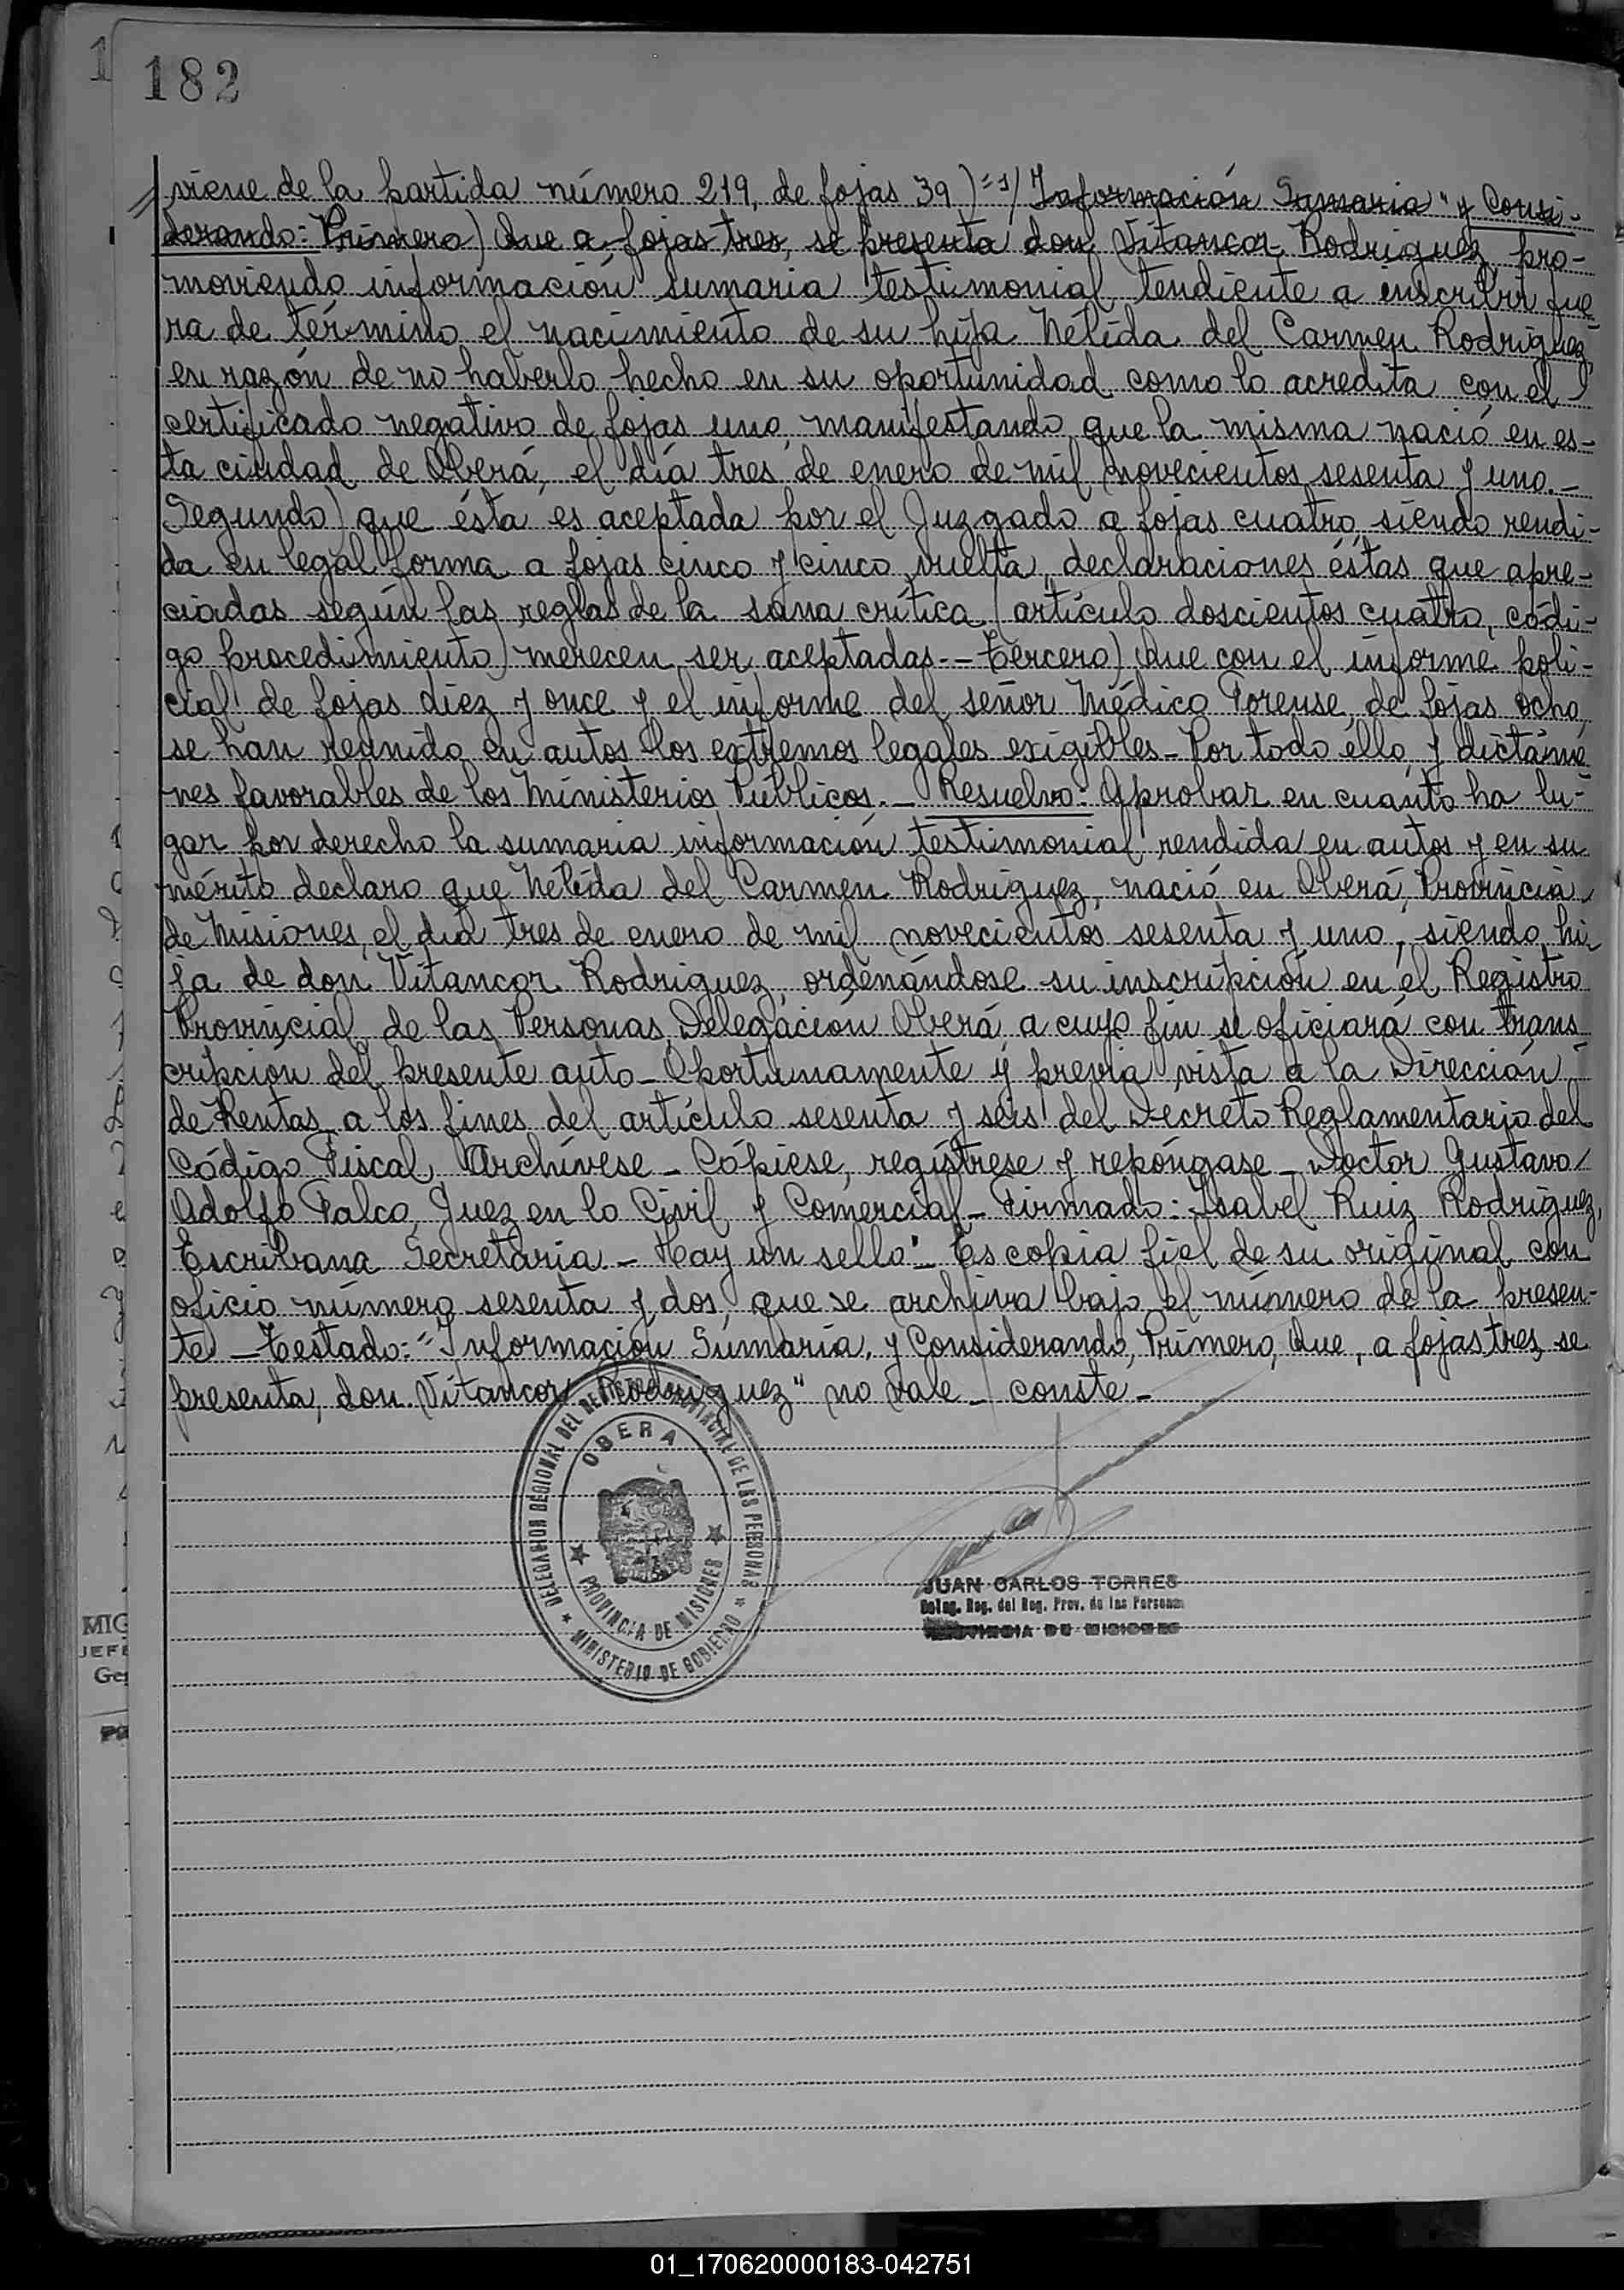 1
182
viene de la partida número 219, de fojas 39)="/ Información Sumaria" y Consi-
derando: Primero) Que a fojas tres, se presenta don Vitancor Rodriguez, pro-
moviendo información sumaria testimonial tendiente a inscribir fue
ra de término el nacimiento de su hija Nélida del Carmen Rodriguez,
en razón de no haberlo hecho en su oportunidad como lo acredita con el
certificado negativo de fojas uno, manifestando que la misma nació en es-
ta ciudad de Oberá, el día tres de enero de mil novecientos sesenta y uno.-
Segundo) que ésta es aceptada por el Juzgado a fojas cuatro, siendo rendi-
da en legal forma a fojas cinco y cinco vuelta, declaraciones éstas que apre-
ciadas según las reglas de la sana crítica (artículo doscientos cuatro, códi-
go procedimiento) merecen ser aceptadas.-- Tercero) Que con el informe poli-
cial de fojas diez y once y el informe del señor Médico Forense, de fojas ocho,
se han reunido en autos los extremos legales exigibles- Por todo éllo, y dictáme
nes favorables de los Ministerios Públicos.- Resuelvo: Aprobar en cuanto ha lu-
gar por derecho la sumaria información testimonial rendida en autos y en su
mérito declaro que Nélida del Carmen Rodriguez, nació en Oberá, Provincia
de Misiones, el día tres de enero de mil novecientos sesenta y uno, siendo hi-
ja de don Vitancor Rodriguez, ordenándose su inscripción en el Registro
Provincial de las Personas, Delegación Oberá a cuyo fin se oficiará con trans
cripción del presente auto- Oportunamente y previa vista a la Dirección
de Rentas a los fines del artículo sesenta y seis del Decreto Reglamentario del
Código Fiscal, Archívese- Cópiese, regístrese y repóngase- Doctor Gustavo
Adolfo Falco, Juez en lo Civil y Comercial- Firmado: Isabel Ruiz Rodriguez,
Escribana Secretaria- Hay un sello"- Es copia fiel de su original con
oficio número sesenta y dos, que se archiva bajo el número de la presen-
te -Testado:="Información Sumaria, y Considerando, Primero, Que, a fojas tres, se
presenta, don Vitancor Rodriguez" no vale- conste-
DELEGACION REGIONAL DEL REGISTRO PROVINCIAL DE LAS PERSONAS
OBERA
★ PROVINCIA DE MISIONES ★
★ MINISTERIO DE GOBIERNO ★
JUAN CARLOS TORRES
Deleg. Reg. del Reg. Prov. de las Personas
PROVINCIA DE MISIONES
MIG
JEFE
Ge
01_170620000183-042751